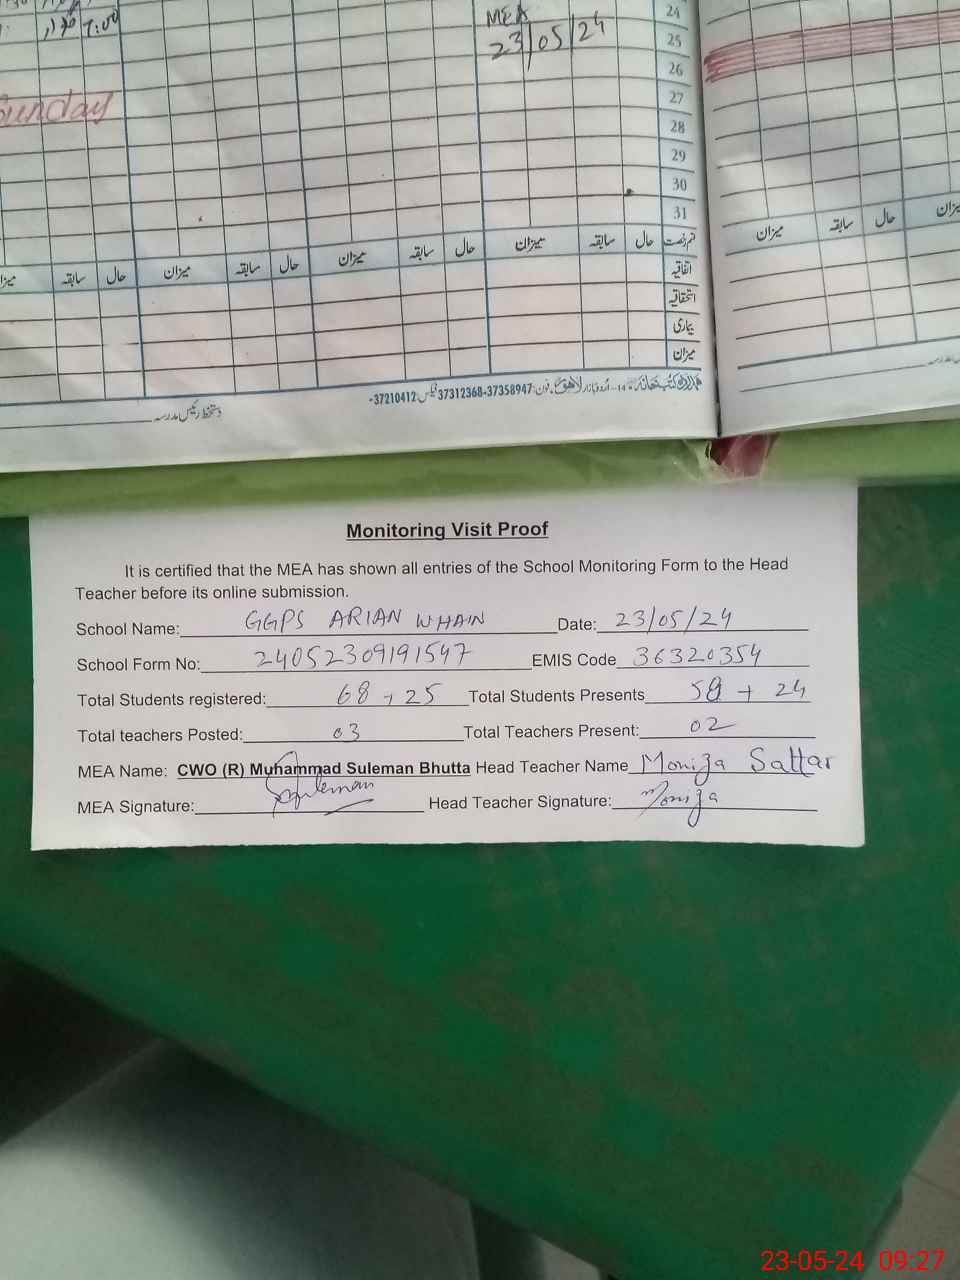 7:00
MEA
23/05/24
Sunday
24
25
26
27
28
29
30
31
میزان سابقہ حال میزان سابقہ حال میزان سابقہ حال میزان سابقہ حال قسم رخصت
اتفاقیہ
استحقاقیہ
بیماری
میزان
اردو بازار لاہور۔ فون: 37358947-37312368 فیکس: 37210412-
دستخط رئیس مدرسہ
میزان سابقہ حال میزان
Monitoring Visit Proof
It is certified that the MEA has shown all entries of the School Monitoring Form to the Head
Teacher before its online submission.
School Name: GGPS ARIAN WHAIN Date: 23/05/24
School Form No: 24052309191547 EMIS Code 36320354
Total Students registered: 68 + 25 Total Students Presents 58 + 24
Total teachers Posted: 03 Total Teachers Present: 02
MEA Name: CWO (R) Muhammad Suleman Bhutta Head Teacher Name Moniza Sattar
MEA Signature: Suleman Head Teacher Signature: Moniza
23-05-24 09:27